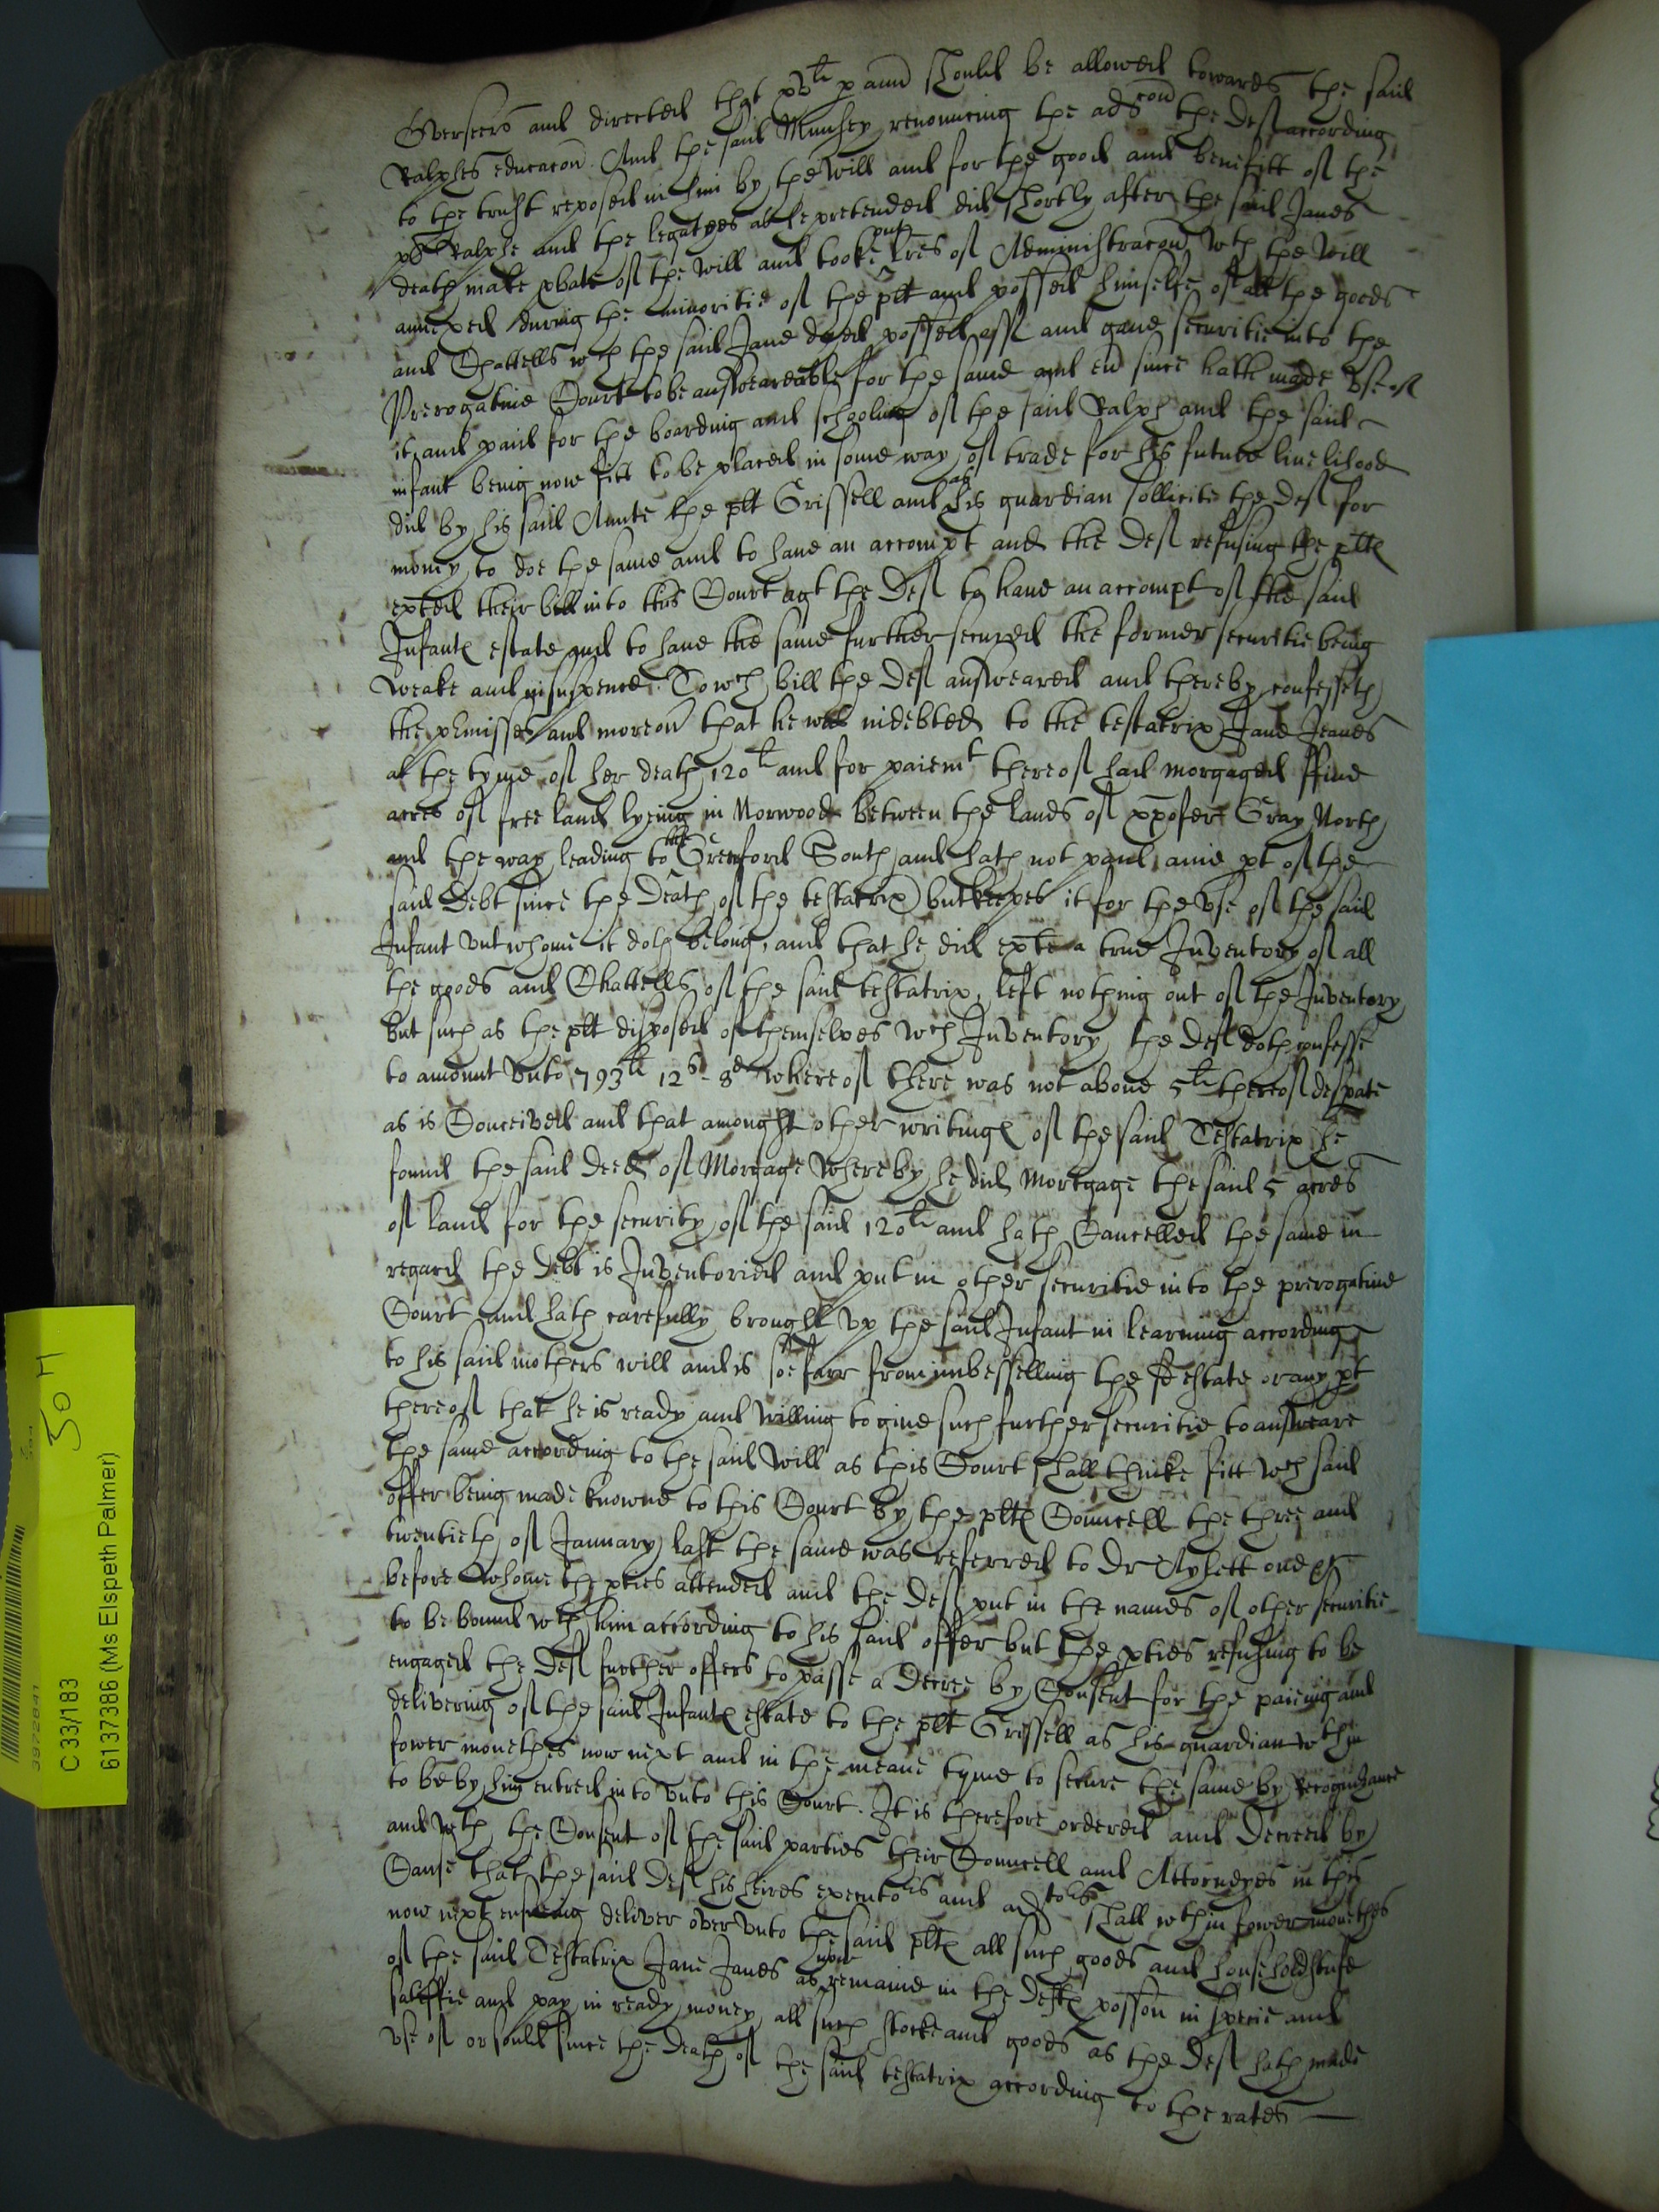 Overseers and directed that xvli p ann should be allowed towards the said
Ralphes educacon. And the said Munsey renouncing the adcon the Deft according
to the trust reposed in him by the will and for the good and benefitt of the
pd Ralphe and the legatees as he pretended did shortly after the said Janes
death make pbate of the will and tooke out lres of Administracon wth the will
annexed during the minoritie of the plt and possed himselfe of all the goods
and Chattells wch the said Jane dyed possed of and gave securitie into the
Prerogative Court to be answeareable for the same and ev since hath made use of
it and paid for the boarding and schooling of the said Ralph and the said
infant being now fitt to be placed in some way of trade for his future livelihood
did by his said Aunte the plt Grissell and as his guardian sollicite the Deft for
money to doe the same and to have an accompt and the Deft refusing the pltes
exted their bill into this Court agt the Deft to have an accompt of the said
Infantes estate and to have the same further secured the former securitie being
weake and in suspence. To wch bill the Deft answeared and thereby confesseth
the pmisses and moreov that he was indebted to the testatrix Jane Jeanes
at the tyme of her death 120li and for paiemt thereof had morgaged ffive
acres of free land lyeing in Norwood between the lands of xpofer Gray North
and the way leading to the Greeford South and hath not paid anie pt of the
said Debt since the Death of the testatrix but keepes it for the use of the said
Infant unt whome it doth belong, and that he did exte a true Inventory of all
the goods and Chattells of the said testatrix, left nothing out of the Inventory
but such as the plt disposed of themselves wch Inventory the Deft doth confesse
to amount unto 793li 12s - 8d whereof there was not above 5li thereof despate
as is Conceived and that amongst other writinges of the said Testatrix he
found the said Deed of Morgage whereby he did Mortgage the said 5 acres
of land for the security of the said 120li and hath Cancelled the same in
regard the debt is Inventoried and put in other securitie into the prerogative
Court and hath carefully brought up the said Infant in learning according
to his said mothers will and is soe farr from imbesselling the sd estate or any pt
thereof that he is ready and willing to give such further securitie to answeare
the same according to the said will as this Court shall thinke fitt wch said
offer being made knowne to this Court by the pltes Councell the three and
twentieth of January last the same was referred to Dr Aylett one &c
before whome the pties attended and the Deft put in the names of other securitie
to be bound wth him according to his said offer but the pties refusing to be
engaged the Deft further offers to passe a Decree by Consent for the paieing and
delivering of the said Infantes estate to the plt Grissell as his guardian wthin
fower monethes now next and in the meane tyme to secure the same by Recognizance
to be by him entred into unto this Court. It is therefore ordered and Decreed by
and wth the Consent of the said parties their Councell and Attorneyes in this
Cause that the said Deft his heires executors and adtors shall wthin fower monethes
now next ensueing deliver over unto the said pltes all such goods and householdstufe
of the said Testatrix Jane Janes as now remaine in the Deftes possion in specie and
satisffie and pay in ready money all such stocke and goods as the Deft hath made
use of or sould since the death of the said testatrix according to the rates
C 33/183
6137386 (Ms Elspeth Palmer)